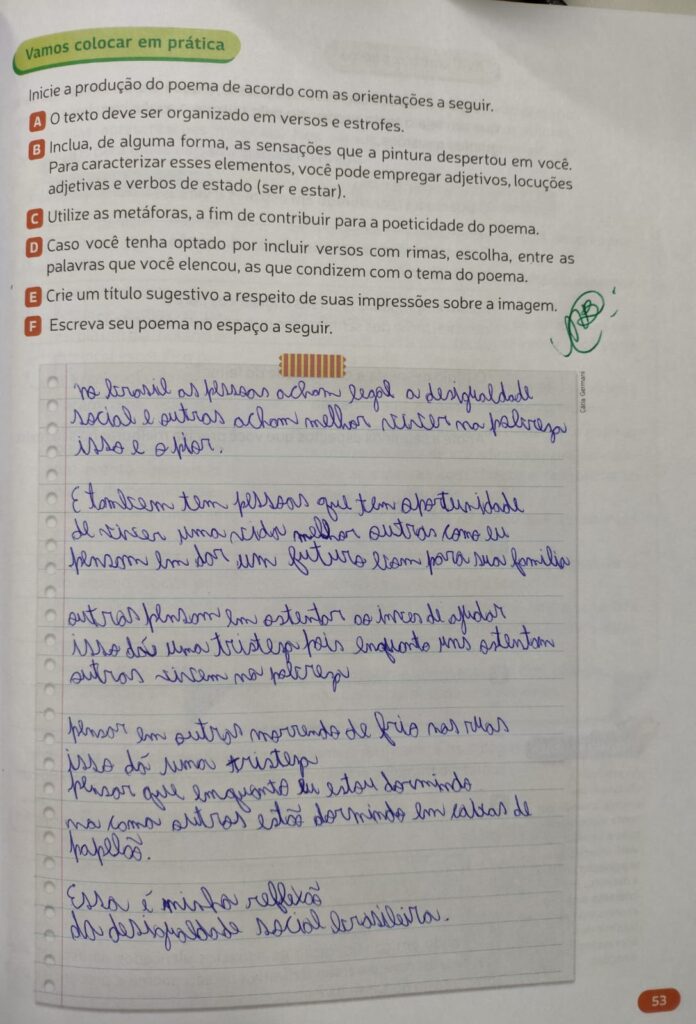 Vamos colocar em prática
Inicie a produção do poema de acordo com as orientações a seguir.
A O texto deve ser organizado em versos e estrofes.
B Inclua, de alguma forma, as sensações que a pintura despertou em você.
Para caracterizar esses elementos, você pode empregar adjetivos, locuções
adjetivas e verbos de estado (ser e estar).
C Utilize as metáforas, a fim de contribuir para a poeticidade do poema.
D Caso você tenha optado por incluir versos com rimas, escolha, entre as
palavras que você elencou, as que condizem com o tema do poema.
E Crie um título sugestivo a respeito de suas impressões sobre a imagem.
F Escreva seu poema no espaço a seguir.
Cátia Germani
no brasil as pessoas acham legal a desigualdade
social e outras acham melhor viver na pobreza
isso e o pior.
E tambem tem pessoas que tem oportunidade
de viver uma vida melhor outras como eu
pensam em dar um futuro bom para sua familia
outras pensam em ostentar ao inves de ajudar
isso dá uma tristeza pois enquanto uns ostentam
outras vivem na pobreza
pensar em outras morrendo de frio nas ruas
isso dá uma tristeza
pensar que enquanto eu estou dormindo
na cama outros estão dormindo em caixas de
papelão.
Essa é minha reflexão
da desigualdade social brasileira.
53